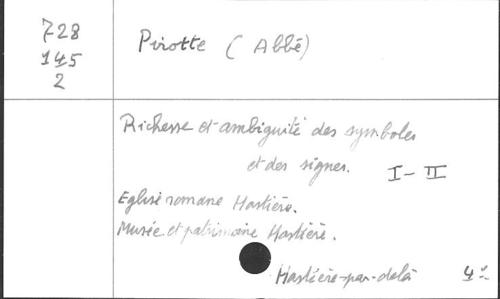 728
145
2
Pirotte (Abbé)
Richesse et ambiguité des symboles
et des signes. I-II
Eglise romane Hastière.
Musée et patrimoine Hastière.
Hastière-par-delà 4°